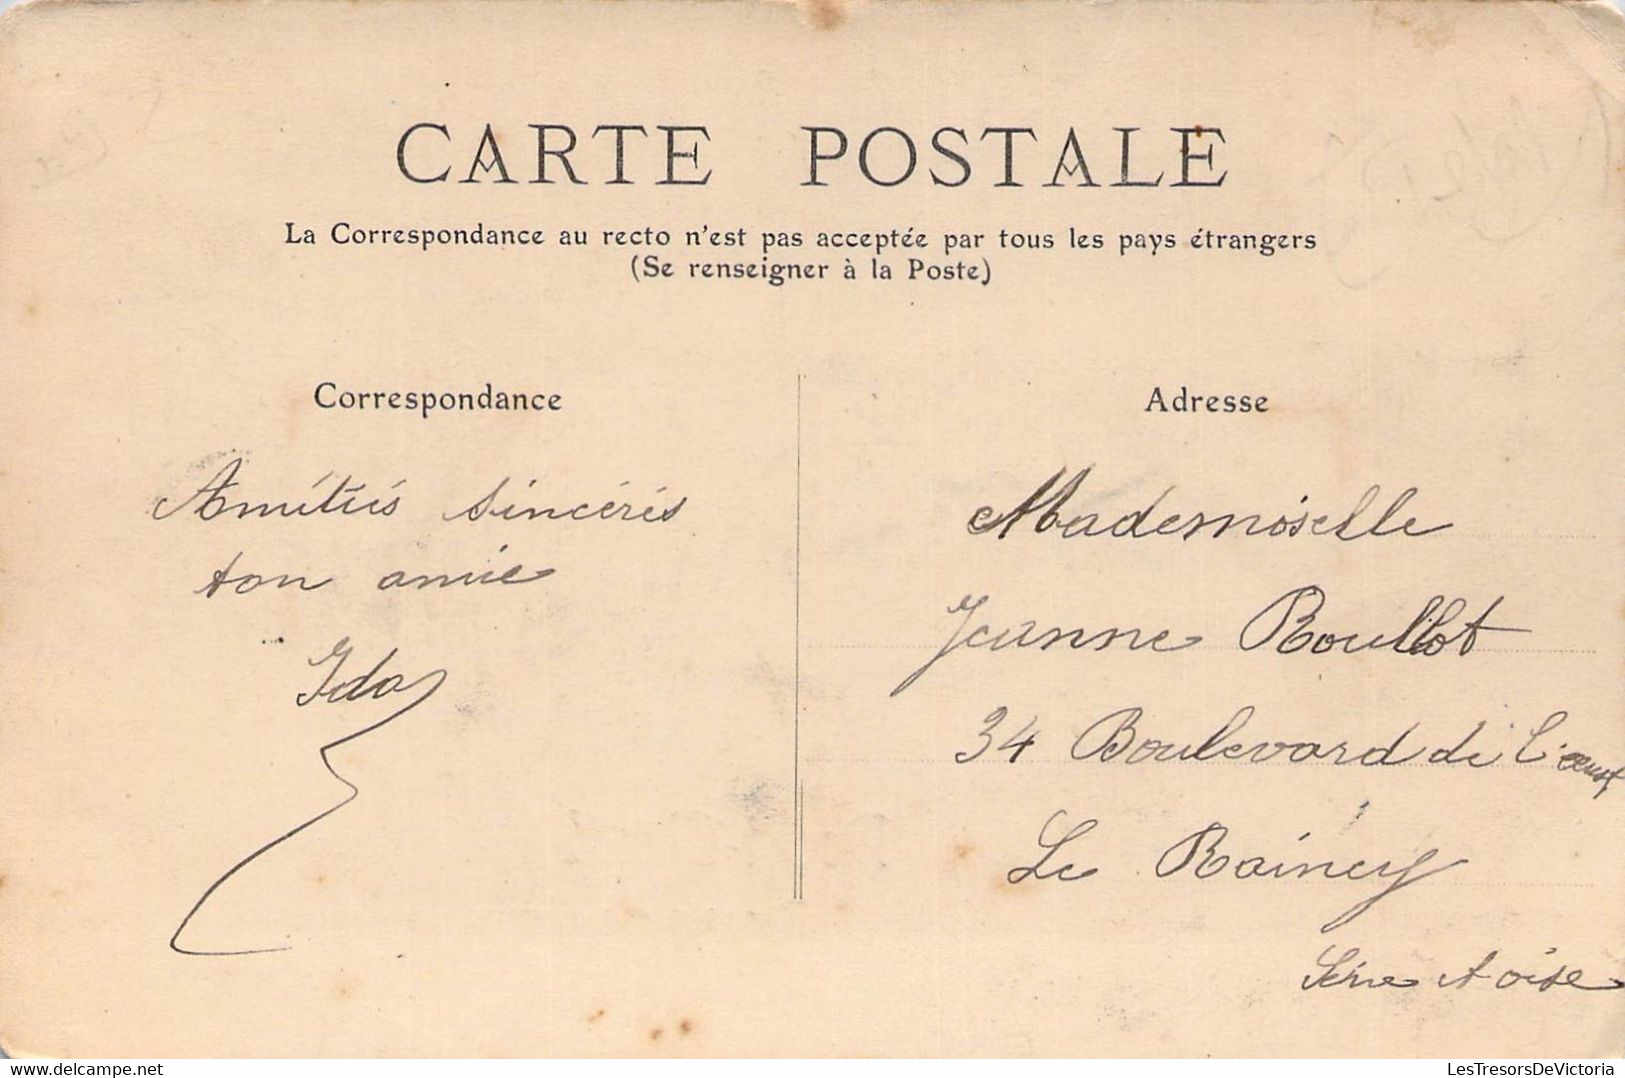 CARTE POSTALE
La Correspondance au recto n'est pas acceptée par tous les pays étrangers
(Se renseigner à la Poste)
Correspondance
Amitiés sincérés
ton amie
Ida
Adresse
Mademoiselle
Jeanne Roullot
34 Boulevard de l'ouest
Le Raincy
Seine et oise
LesTresorsDeVictoria